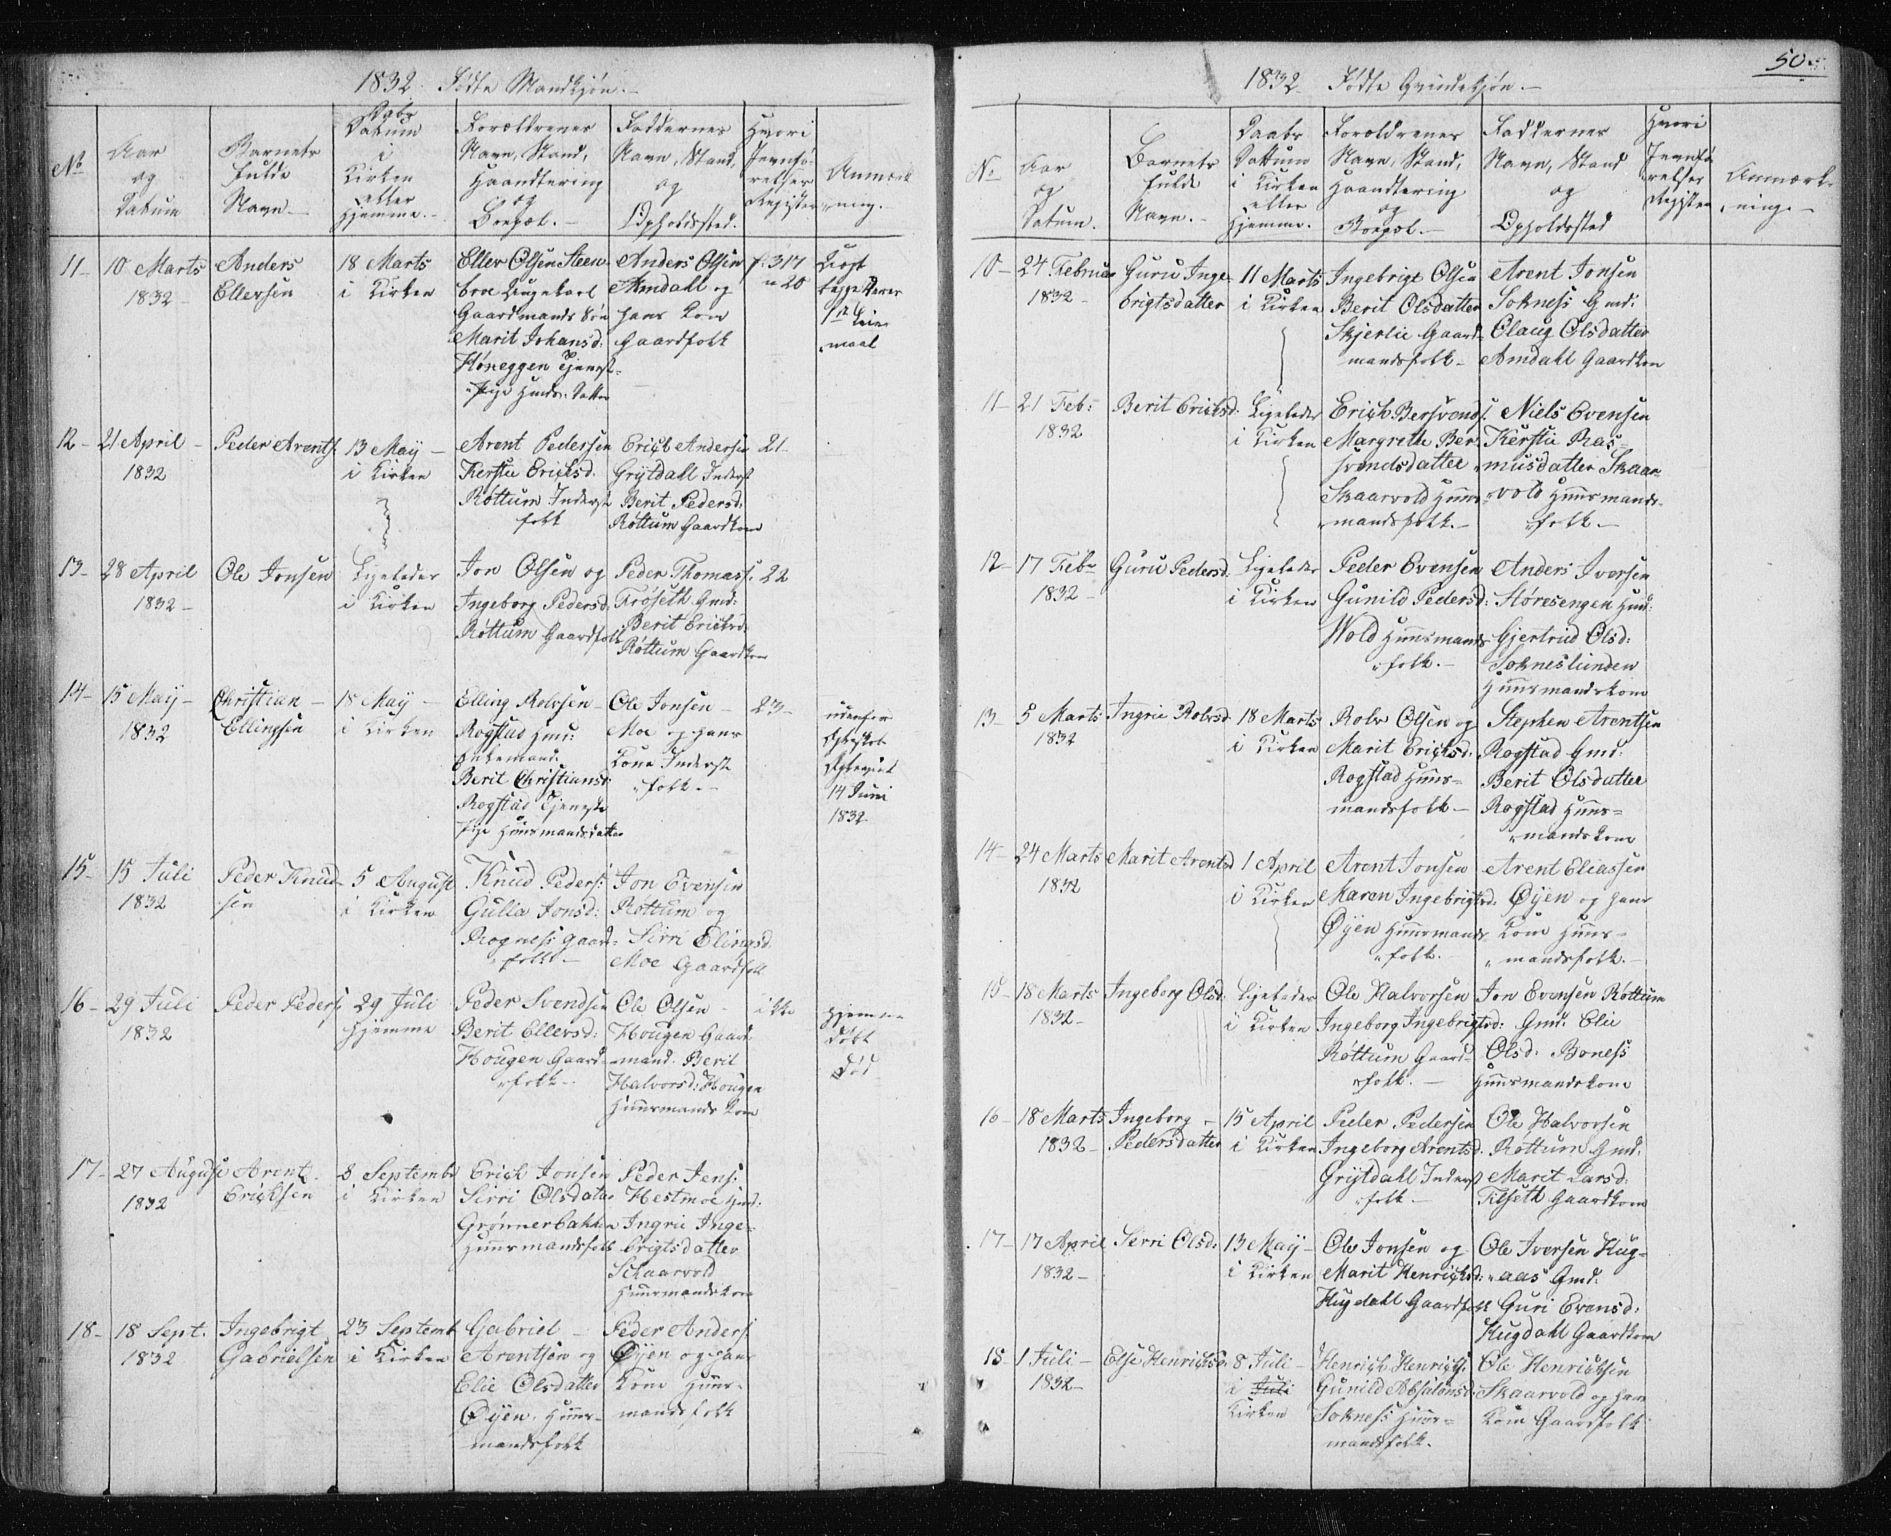 1832. Fødte Mandkjøn.
No
Aar
og
Datum
Barnets
fulde
Navn.
Daabs
Datum
i
Kirken
eller
Hjemme.
Forældrenes
Navn, Stand,
Haandtering
og
Boepæl.
Faddernes
Navn, Stand,
og
Opholdssted.
Hvori
Jevnfø-
relses
Register
Anmærk
ning.
11 10 Marts
1832
Anders
Ellevsen
18 Marts
i Kirken
Ellev Olsen Steen
Gaardmands Søn
Marit Johansd:
Høneggen Tjenest-
Anders Olsen
Amdahl og
hans Kone
Gaardfolk
f. 317
n 20
maal
12 21 April
1832
Peder Arents.
13 May
i Kirken
Arent Pedersen
Kerstie Ericksd.
Røttum Inderst
folk
Erich Andersen
Grytdahl Inderst
Berit Pedersd:
Røttum Gaardkone
21
13 28 April
1832
Ole Jonsen
Ligeledes
i Kirken
Jon Olsen og
Ingeborg Pedersd.
Røttum Gaardfolk
Peder Thomass.
Frøseth Gmd:
Berit Ericksd:
Røttum Gaardkone
22
14 15 May
1832
Christian
Ellingsen
18 May
i Kirken
Elling Rolvsen
Rogstad Hmd:
Enkemand:
Berit Christiansd:
Rogstad Tjeneste
Pige Huusmandsdatter
Ole Jonsen
Moe og hans
Kone Inderst
folk
23
udenfor
Ægteskab
14 Juni
1832
15 15 Juli
1832
Peder Knud-
sen
5 August
i Kirken
Knud Peders:
Gulla Jonsd:
Rogness Gaard-
folk
Jon Evensen
Rottum og
Sirri Elingsd.
Moe Gaardfolk
16 29 Juli
1832
Peder Peders:
29 Juli
Hjemme
Peder Svendsen
Berit Ellevsd:
Hougen Gaard
folk
Ole Olsen
Hougen Gaard
mand. Berit
Halvorsd: Hougen
Huusmands Kone
ikke
hjemme
døbt
død
17 27 August
1832
Arent
Ericksen
8 Septembr
i Kirken
Erich Jonsen
Sirri Olsdatter
Grønnerbakken
Huusmandsfolk
Peder Jens:
Hestmoe Hmd:
Ingrie Inge-
brigtsdatter
Schaarvold
Huusmandskone
18 18 Sept.
1832
Ingebrigt
Gabrielsen
23 Septemb
i Kirken
Gabriel
Arentsen og
Elie Olsdatter
Øyen. Huus-
mandsfolk
Peder Anders:
Øyen og hans
Kone Huus-
mandsfolk
50
1832 Fødte Qvindekjøn.
No
Aar
og
Datum.
Barnets
fulde
Navn.
Daabs
Dattum
i Kirken
eller
Hjemme.
Forældrenes
Navn, Stand,
Haandtering
og
Boepæl.
Faddernes
Navn, Stand
og
Opholdssted
Hvori
Jevnfø-
relses
Register
Anmærk-
ning
10 24 Februar
1832
Guru Inge-
brigtsdatter
11 Marts
i Kirken
Ingebrigt Olsen
Berit Olsdatter
Skjerlie Gaard
mandsfolk
Arent Jonsen
Sokness Gmd:
Olaug Olsdatter
Amdahl Gaardkone
11 21 Feb:
1832
Berit Ericksd:
Ligeledes
i Kirken
Erich Bersvends.
Margrethe Ber-
svendsdatter
Skaarvold Huus-
mandsfolk
Niels Evensen
Kerstie Ras-
musdatter Skaar-
vold Huusmands-
folk
12 17 Febr
1832
Guru Pedersd.
Ligeledes
i Kirken
Peder Evensen
Gunild Pedersd:
Wold Huusmands
folk
Anders Iversen
Støresengen Hmd:
Gjertrud Olsd:
Sokneslunden
Huusmandskone
13 5 Marts
1832
Ingrie Rolvsd
18 Marts
i Kirken
Rolv Olsen og
Marit Ericksd:
Rogstad Huus-
mandsfolk
Stephen Arentsen
Rogstad Gmd:
Berit Olsdatter
Rogstad Huus-
mandskone
14 24 Marts
1832
Marit Arentsd
1 April
i Kirken
Arent Jonsen
Maren Ingebrigtsd:
Øyen Huusmands
folk
Arent Eliassen
Øyen og hans
Kone Huus-
mandsfolk
15 18 Marts
1832
Ingeborg Olsd:
Ligeledes
i Kirken
Ole Halvorsen
Ingeborg Ingebrigtsd:
Røttum Gaard-
folk
Jon Evensen Røttum
Gmd. Elie
Olsd: Boness
Huusmandskone
16 18 Marts
1832
Ingeborg
Pedersdatter
15 April
i Kirken
Peder Pedersen
Ingeborg Arentsd.
Grytdahl Inderst
folk
Ole Halvorsen
Rottum Gmd.
Marit Larsd:
Tilseth Gaardkone
17 17 April
1832
Sirri Olsd:
13 May
i Kirken
Ole Jonsen og
Marit Henricksd:
Hugdahl Gaardfolk
Ole Iversen Hug-
aas Gmd:
Guri Evensd:
Hugdahl Gaardkone
18 1 Juli
1832
Else Henricksd:
8 Juli
i Juli
Kirken
Henrich Henricks.
Gunild Absalonsd:
Sokness Huus-
mandsfolk.
Ole Henricksen
Skaarvold og hans
Kone Gaardfolk